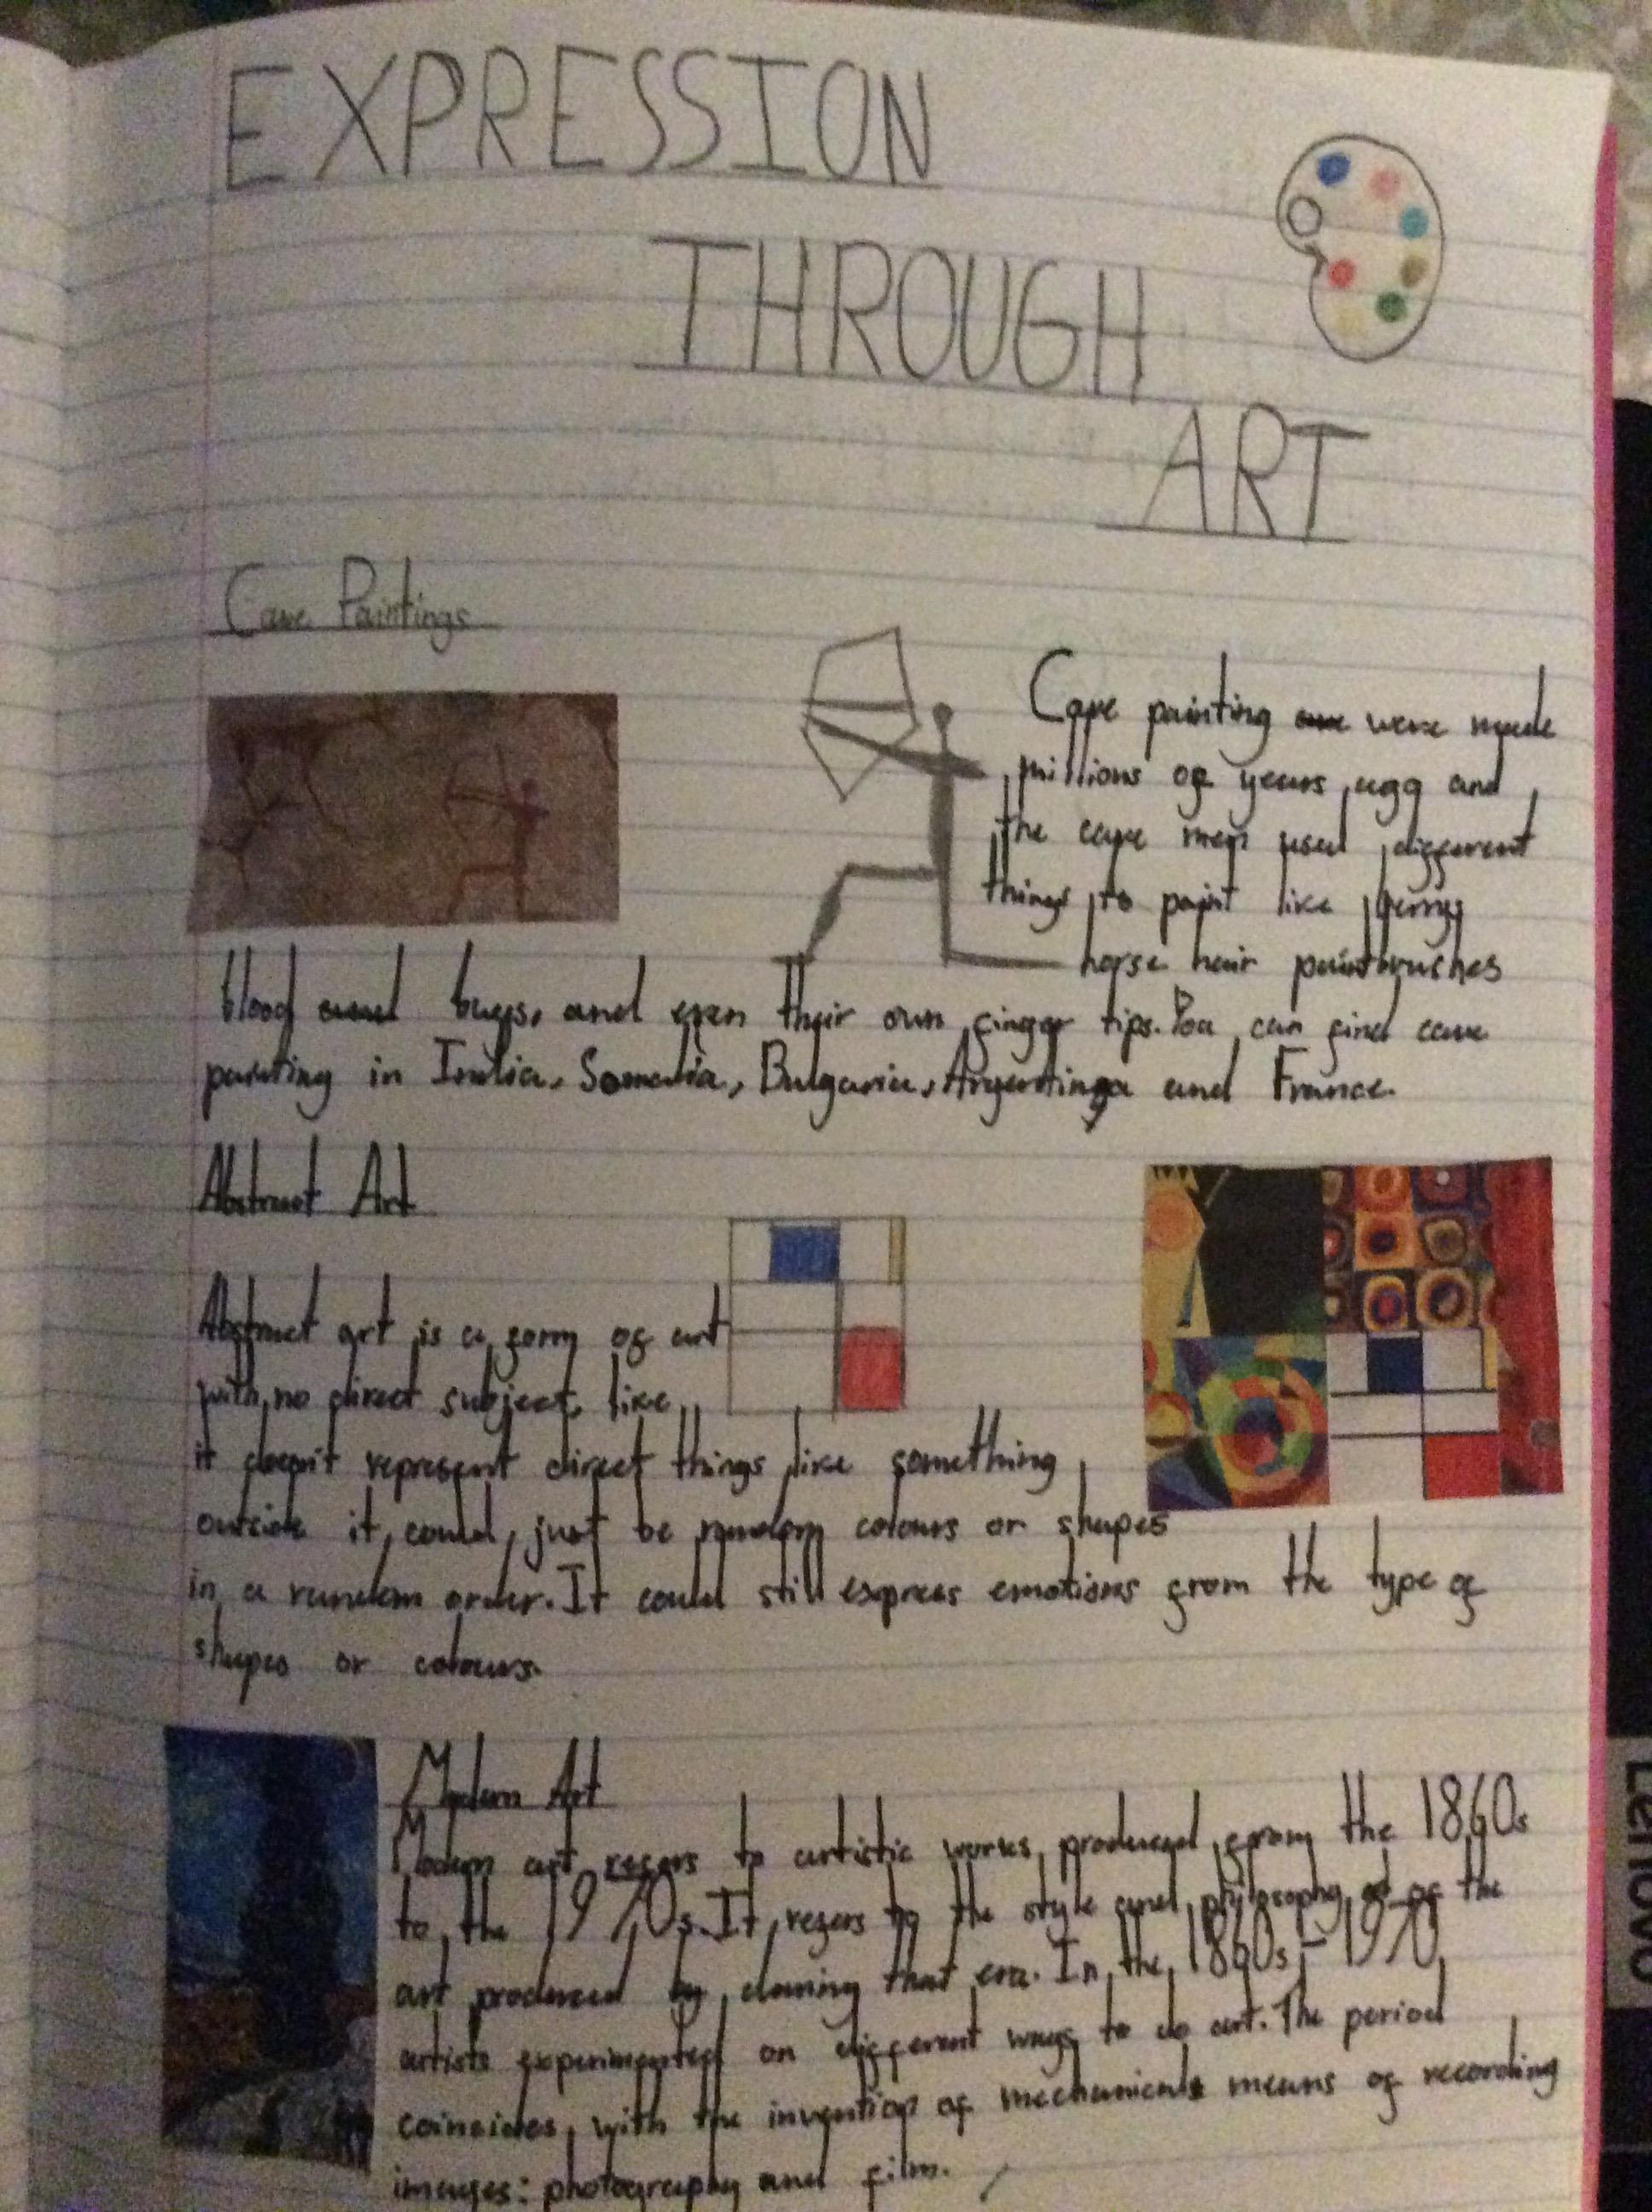 EXPRESSION
THROUGH
ART
Cave Paintings
Cave painting were made
millions of years ago and
the cave men used different
things to paint like berrys
horse hair paintbrushes
blood and bugs, and even their own finger tips. You can find cave
painting in India, Somalia, Bulgaria, Argentina and France.
Abstract Art
Abstract art is a form of art
with no direct subject, like
it doesn't represent direct things like something
outside it could just be random colours or shapes
in a random order. It could still express emotions from the type of
shapes or colours.
Modern Art
Modern art refers to artistic works produced from the 1860s
to the 1970s. It refers to the style and philosophy of the
art produced by during that era. In the 1860s - 1970
artists experimented on different ways to do art. The period
coinsides with the invention of mechanicals means of recording
images: photography and film.
Lenovo